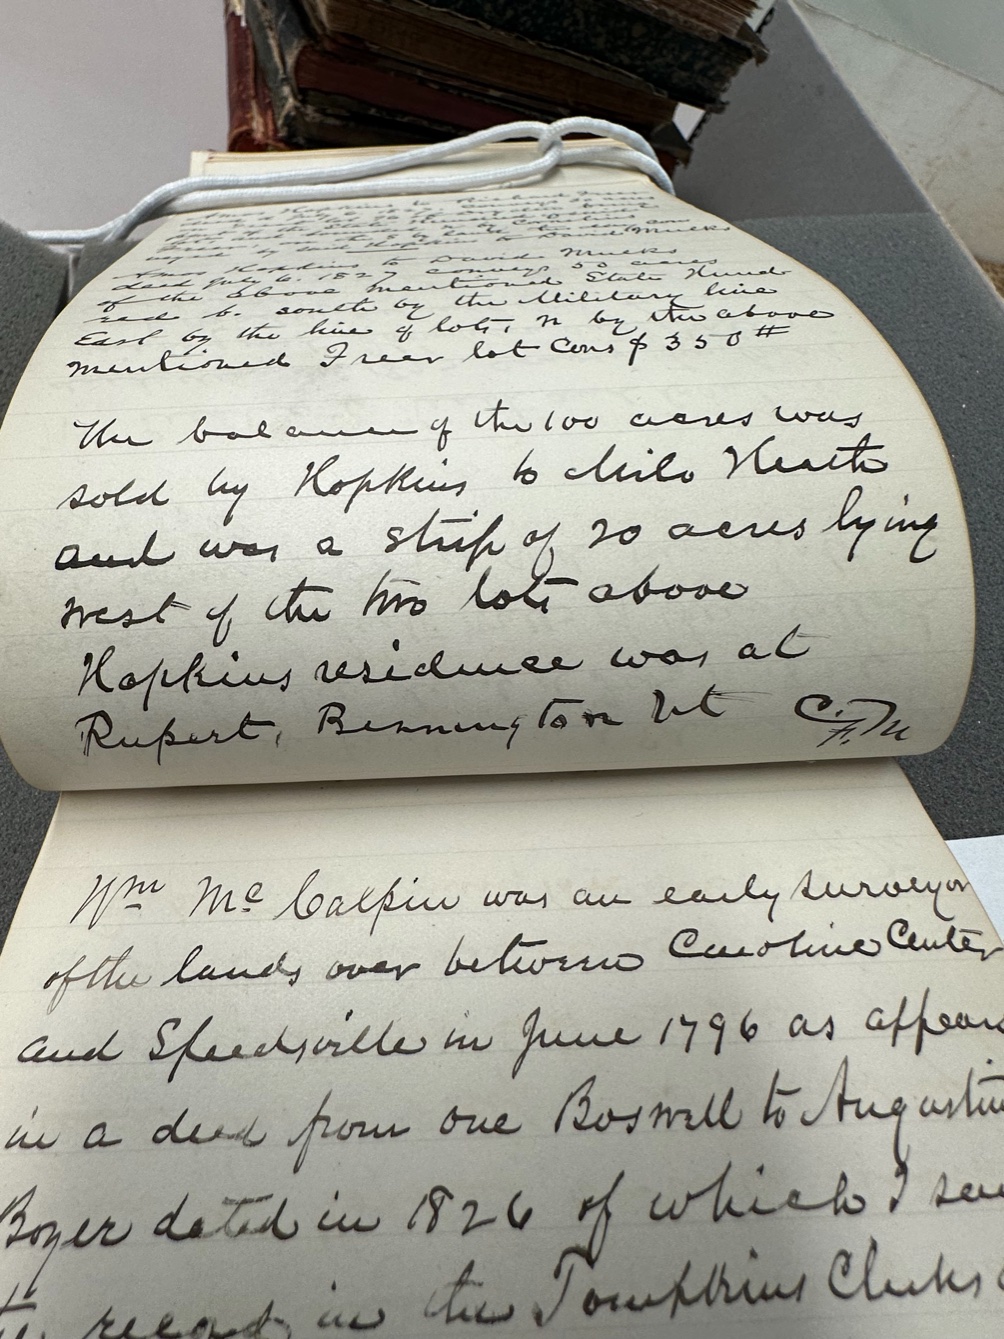 Amos Hopkins to David Mulks
deed July 6. 1827 conveys 50 acres
of the above mentioned State Hund-
red b. south by the Military line
East by the line of lots, N by the above
mentioned Freer lot Cons $350#
The balance of the 100 acres was
sold by Hopkins to Milo Heath
and was a strip of 20 acres lying
west of the two lots above
Hopkins residence was at
Rupert, Bennington Vt C.F.M
Wm Mc Calpin was an early surveyor
of the lands over between Caroline Center
and Speedsville in June 1796 as appears
in a deed from one Boswell to Augustin
Boyer dated in 1826 of which I saw
the record in the Tompkins Clerks